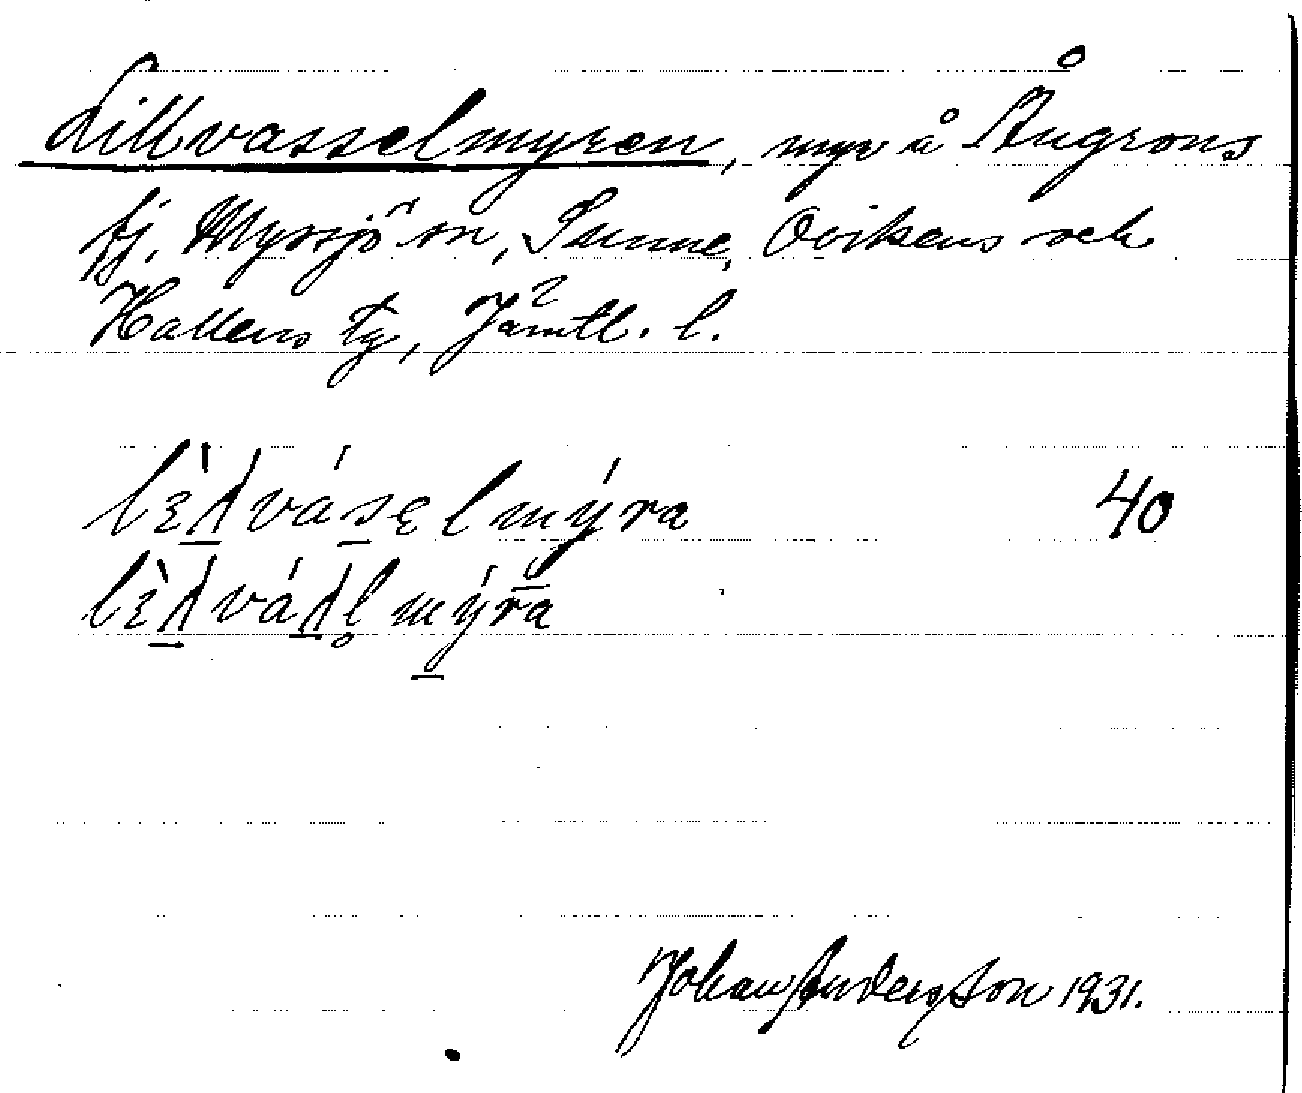 Lillvasselmyren, myr å Ångrons
fj. Myssjö sn, Sunne, Ovikens och
Hallens tg, Jämtl. l.
lèʌváselmýra 40
lèʌváʌl̥mýra
Johan Anderson 1931.